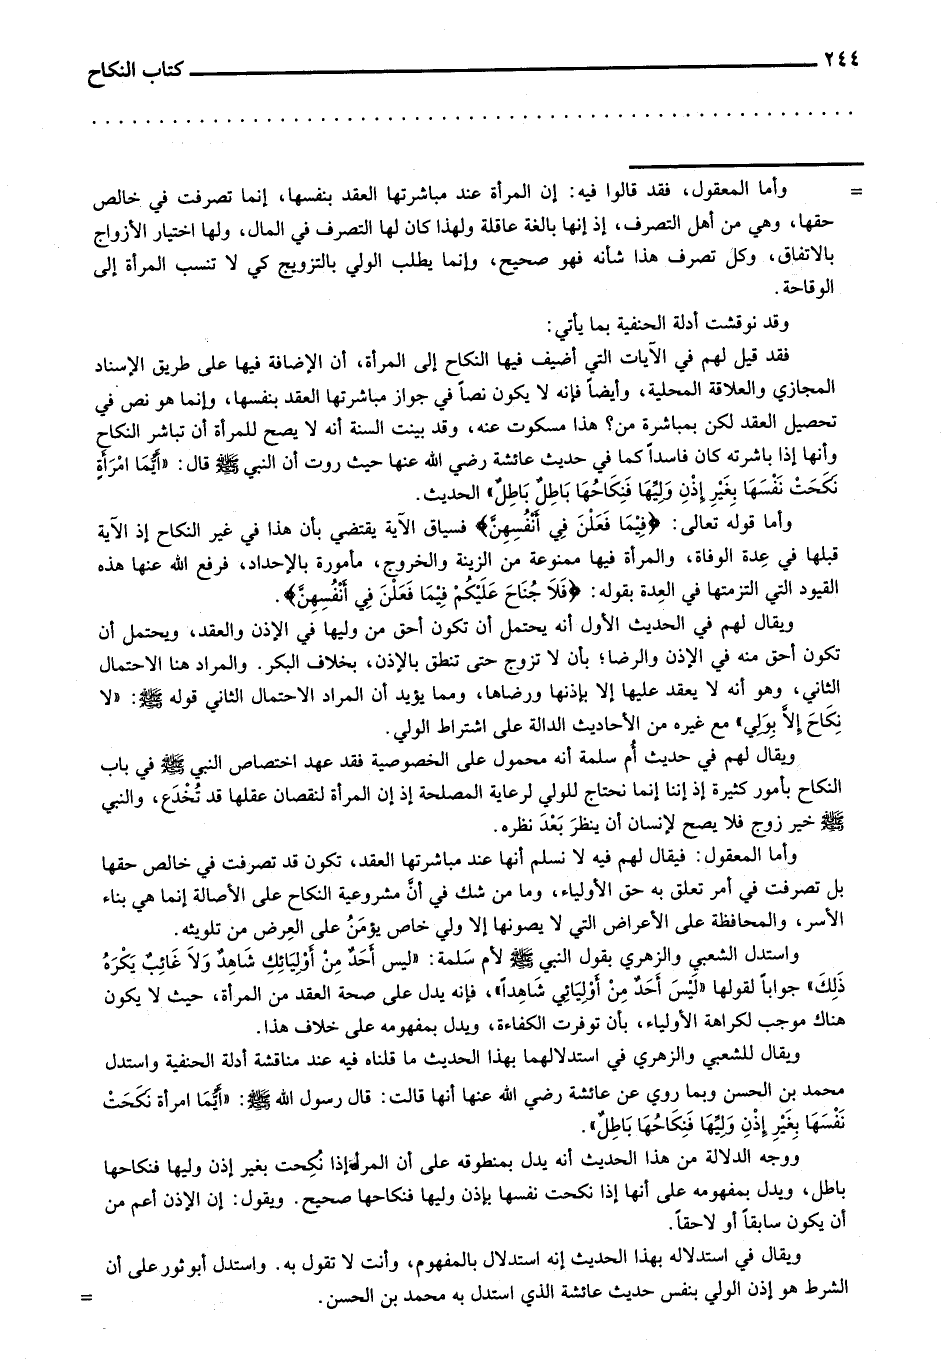 ٢٤٤ كتاب النكاح
= وأما المعقول، فقد قالوا فيه: إن المرأة عند مباشرتها العقد بنفسها، إنما تصرفت في خالص
حقها، وهي من أهل التصرف، إذ إنها بالغة عاقلة ولهذا كان لها التصرف في المال، ولها اختيار الأزواج
بالاتفاق، وكل تصرف هذا شأنه فهو صحيح، وإنما يطلب الولي بالتزويج كي لا تنسب المرأة إلى
الوقاحة.
وقد نوقشت أدلة الحنفية بما يأتي:
فقد قيل لهم في الآيات التي أضيف فيها النكاح إلى المرأة، أن الإضافة فيها على طريق الإسناد
المجازي والعلاقة المحلية، وأيضاً فإنه لا يكون نصاً في جواز مباشرتها العقد بنفسها، وإنما هو نص في
تحصيل العقد لكن بمباشرة من؟ هذا مسكوت عنه، وقد بينت السنة أنه لا يصح للمرأة أن تباشر النكاح
وأنها إذا باشرته كان فاسداً كما في حديث عائشة رضي الله عنها حيث روت أن النبي ﷺ قال: «أَيُّمَا امْرَأَةٍ
نَكَحَتْ نَفْسَهَا بِغَيْرِ إِذْنِ وَلِيِّهَا فَنِكَاحُهَا بَاطِلٌ بَاطِلٌ» الحديث.
وأما قوله تعالى: ﴿فِيْمَا فَعَلْنَ فِي أَنْفُسِهِنَّ﴾ فسياق الآية يقتضي بأن هذا في غير النكاح إذ الآية
قبلها في عِدة الوفاة، والمرأة فيها ممنوعة من الزينة والخروج، مأمورة بالإحداد، فرفع الله عنها هذه
القيود التي التزمتها في العِدة بقوله: ﴿فَلاَ جُنَاحَ عَلَيْكُمْ فِيْمَا فَعَلْنَ فِي أَنْفُسِهِنَّ﴾.
ويقال لهم في الحديث الأول أنه يحتمل أن تكون أحق من وليها في الإذن والعقد، ويحتمل أن
تكون أحق منه في الإذن والرضا؛ بأن لا تزوج حتى تنطق بالإذن، بخلاف البكر. والمراد هنا الاحتمال
الثاني، وهو أنه لا يعقد عليها إلا بإذنها ورضاها، ومما يؤيد أن المراد الاحتمال الثاني قوله ﷺ: «لا
نِكَاحَ إلاَّ بِوَلِي» مع غيره من الأحاديث الدالة على اشتراط الولي.
ويقال لهم في حديث أُم سلمة أنه محمول على الخصوصية فقد عهد اختصاص النبي ﷺ في باب
النكاح بأمور كثيرة إذ إننا إنما نحتاج للولي لرعاية المصلحة إذ إن المرأة لنقصان عقلها قد تُخْدَع، والنبي
ﷺ خير زوج فلا يصح لإنسان أن ينظرَ بَعْدَ نظره.
وأما المعقول: فيقال لهم فيه لا نسلم أنها عند مباشرتها العقد، تكون قد تصرفت في خالص حقها
بل تصرفت في أمر تعلق به حق الأولياء، وما من شك في أنَّ مشروعية النكاح على الأصالة إنما هي بناء
الأسر، والمحافظة على الأعراض التي لا يصونها إلا ولي خاص يؤمَنُ على العِرض من تلويثه.
واستدل الشعبي والزهري بقول النبي ﷺ لأم سَلمة: «ليس أَحَدٌ مِنْ أَوْلِيَائِكِ شَاهِدٌ وَلاَ غَائِبٌ يَكْرَهُ
ذَلِكَ» جواباً لقولها «لَيْسَ أَحَدٌ مِنْ أَوْلِيَائِي شَاهِداً»، فإنه يدل على صحة العقد من المرأة، حيث لا يكون
هناك موجب لكراهة الأولياء، بأن توفرت الكفاءة، ويدل بمفهومه على خلاف هذا.
ويقال للشعبي والزهري في استدلالهما بهذا الحديث ما قلناه فيه عند مناقشة أدلة الحنفية واستدل
محمد بن الحسن وبما روي عن عائشة رضي الله عنها أنها قالت: قال رسول الله ﷺ: «أَيُّمَا امرأة نَكَحَتْ
نَفْسَهَا بِغَيْرِ إِذْنِ وَلِيِّهَا فَنِكَاحُهَا بَاطِلٌ».
ووجه الدلالة من هذا الحديث أنه يدل بمنطوقه على أن المرأة إذا نُكِحت بغير إذن وليها فنكاحها
باطل، ويدل بمفهومه على أنها إذا نكحت نفسها بإذن وليها فنكاحها صحيح. ويقول: إن الإذن أعم من
أن يكون سابقاً أو لاحقاً.
ويقال في استدلاله بهذا الحديث إنه استدلال بالمفهوم، وأنت لا تقول به. واستدل أبو ثور على أن
الشرط هو إذن الولي بنفس حديث عائشة الذي استدل به محمد بن الحسن. =